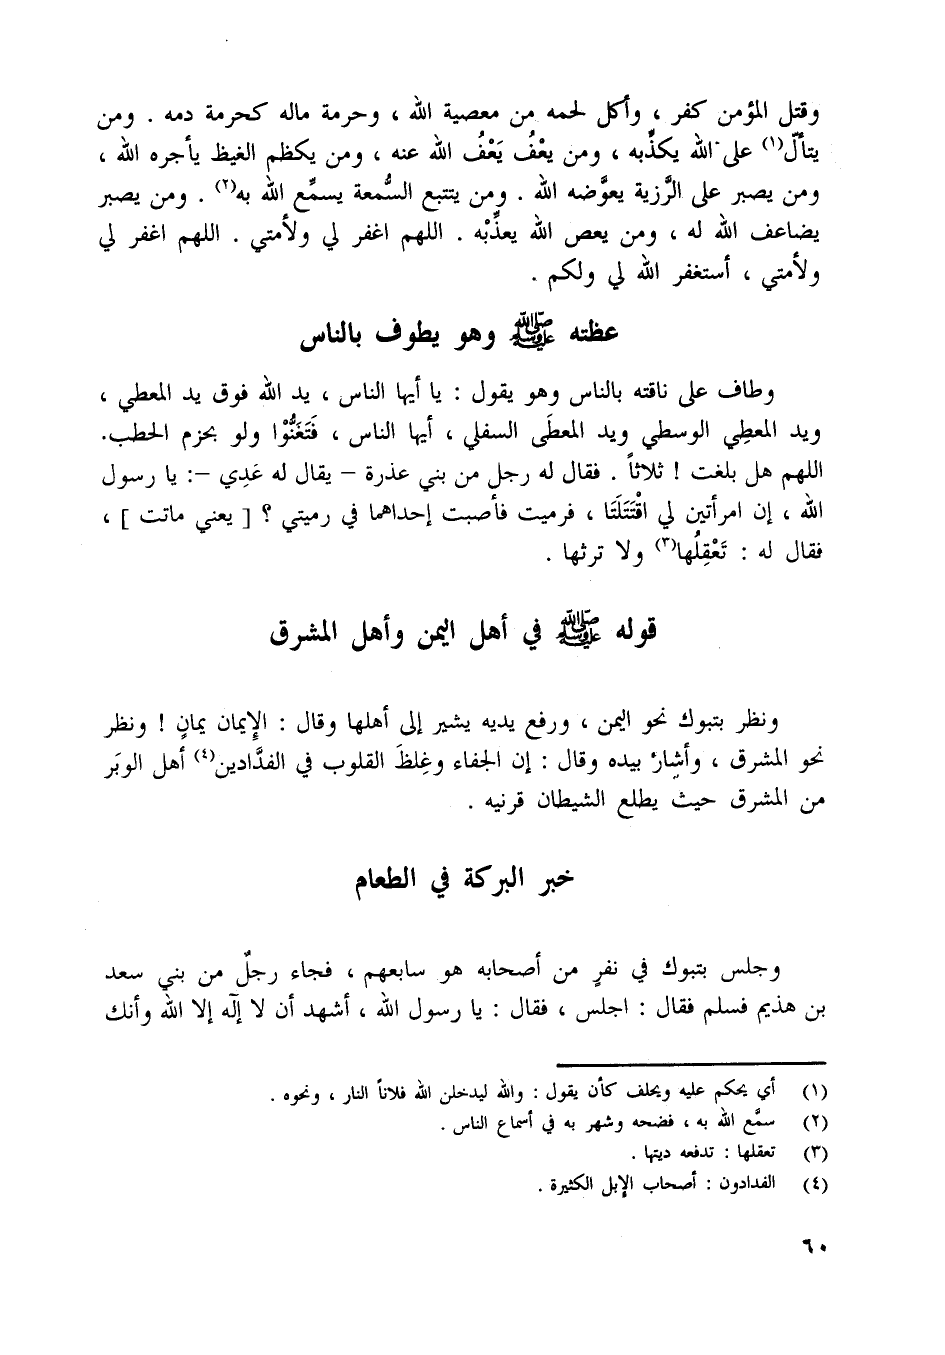 وقتل المؤمن كفر ، وأكل لحمه من معصية الله ، وحرمة ماله كحرمة دمه . ومن
يتألّ(١) على الله يكذِّبه ، ومن يعْفُ يَعْفُ الله عنه ، ومن يكظم الغيظ يأجره الله ،
ومن يصبر على الرَّزية يعوَّضه الله . ومن يتتبع السُّمعة يسمِّع الله به(٢) . ومن يصبر
يضاعف الله له ، ومن يعص الله يعذِّبْه . اللهم اغفر لي ولأمتي . اللهم اغفر لي
ولأمتي ، أستغفر الله لي ولكم .
عظته ﷺ وهو يطوف بالناس
وطاف على ناقته بالناس وهو يقول : يا أيها الناس ، يد الله فوق يد المعطي ،
ويد المعطِي الوسطي ويد المعطَى السفلي ، أيها الناس ، فَتَغَنُّوْا ولو بحزم الحطب.
اللهم هل بلغت ! ثلاثاً . فقال له رجل من بني عذرة – يقال له عَدِي –: يا رسول
الله ، إن امرأتين لي اقْتَتَلَتَا ، فرميت فأصبت إحداهما في رميتي ؟ [ يعني ماتت ] ،
فقال له : تَعْقِلُها(٣) ولا ترثها .
قوله ﷺ في أهل اليمن وأهل المشرق
ونظر بتبوك نحو اليمن ، ورفع يديه يشير إلى أهلها وقال : الإيمان يمانٍ ! ونظر
نحو المشرق ، وأشار بيده وقال : إن الجفاء وغِلظَ القلوب في الفدَّادين(٤) أهل الوبَر
من المشرق حيث يطلع الشيطان قرنيه .
خبر البركة في الطعام
وجلس بتبوك في نفرٍ من أصحابه هو سابعهم ، فجاء رجلٌ من بني سعد
بن هذيم فسلم فقال : اجلس ، فقال : يا رسول الله ، أشهد أن لا إلٓه إلا الله وأنك
(١) أي يحكم عليه ويحلف كأن يقول : والله ليدخلن الله فلاناً النار ، ونحوه .
(٢) سمَّع الله به ، فضحه وشهر به في أسماع الناس .
(٣) تعقلها : تدفعه ديتها .
(٤) الفدادون : أصحاب الإبل الكثيرة .
٦٠